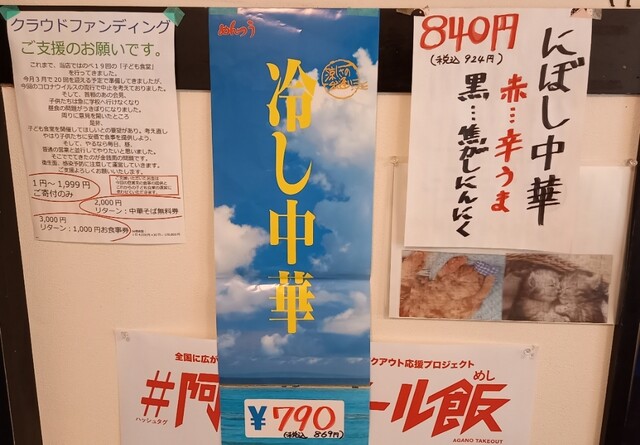 クラウドファンディング
ご支援のお願いです。
これまで、当店ではのべ19回の「子ども食堂」
を行ってきました。
今月3月で20回を迎える予定で準備してきましたが、
今回のコロナウイルスの流行で中止を考えておりました。
そして、首相のあの会見。
子供たちは急に学校へ行けなくなり
昼食の問題がうきぼりになりました。
周りに意見を聞いたところ
是非、
子ども食堂を開催してほしいとの要望があり、考え直し
やはり子供たちに安価で食事を提供しよう、
そして、やるなら毎日、昼、
普通の営業と並行してやりたいと思いました。
そこででてきたのが金銭面の問題です。
衛生面、感染予防に注意して運営していきます。
ご支援よろしくお願いいたします。
1円～1,999円
ご寄付のみ
2,000円
リターン：中華そば無料券
3,000円
リターン：1,000円お食事券
めんつう
冷し中華
涼
¥790
(税込 869円)
840円
(税込 924円)
にぼし中華
赤…辛うま
黒…焦がしにんにく
全国に広が
#阿
ハッシュタグ
クアウト応援プロジェクト
ール飯
めし
AGANO TAKEOUT